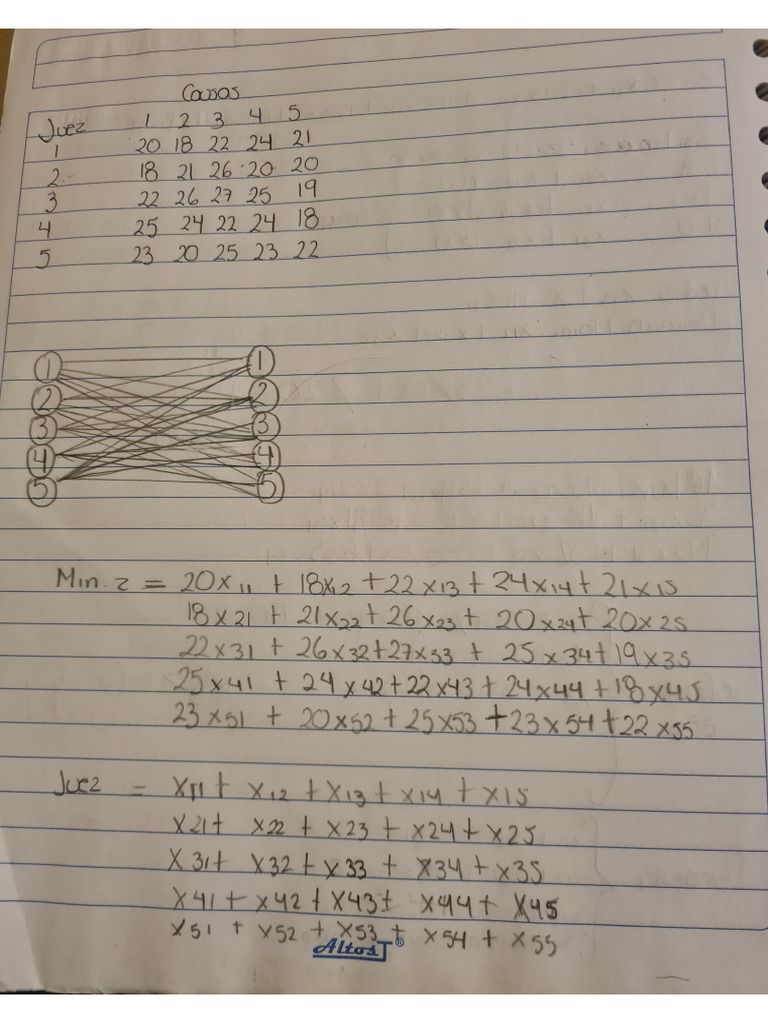 Causas
Juez 1 2 3 4 5
1 20 18 22 24 21
2 18 21 26 20 20
3 22 26 27 25 19
4 25 24 22 24 18
5 23 20 25 23 22
1 1
2 2
3 3
4 4
5 5
Min. z = 20x11 + 18x12 + 22x13 + 24x14 + 21x15
18x21 + 21x22 + 26x23 + 20x24 + 20x25
22x31 + 26x32 + 27x33 + 25x34 + 19x35
25x41 + 24x42 + 22x43 + 24x44 + 18x45
23x51 + 20x52 + 25x53 + 23x54 + 22x55
Juez = x11 + x12 + x13 + x14 + x15
x21 + x22 + x23 + x24 + x25
x31 + x32 + x33 + x34 + x35
x41 + x42 + x43 + x44 + x45
x51 + x52 + x53 + x54 + x55
Altos®